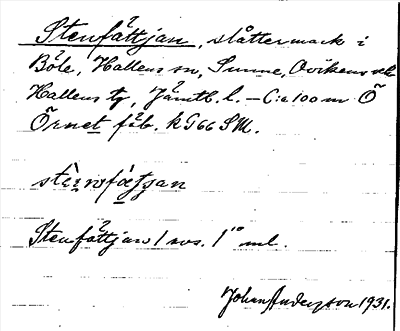 Stenfåttjan, slåttermark i
Böle, Hallens sn, Sunne, Ovikens och
Hallens tg, Jämtl. l. – C:a 100 m Ö
Örnet fäb. kG66 SM.
Stenfåttjan 1 svs. 1 ml.
Johan Anderzon 1931.